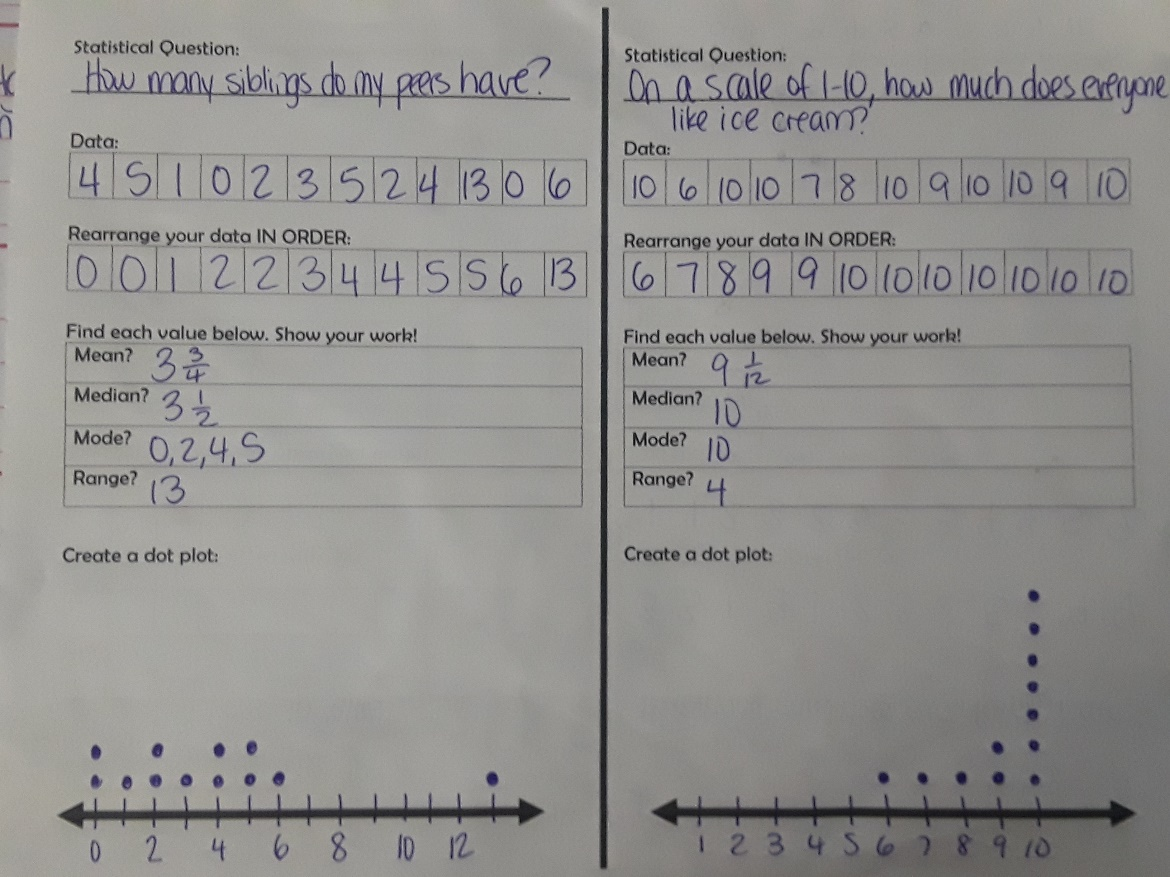 Statistical Question:
How many siblings do my peers have?
Data:
4 5 1 0 2 3 5 2 4 13 0 6
Rearrange your data IN ORDER:
0 0 1 2 2 3 4 4 5 5 6 13
Find each value below. Show your work!
Mean? 3 3/4
Median? 3 1/2
Mode? 0,2,4,5
Range? 13
Create a dot plot:
0 2 4 6 8 10 12
Statistical Question:
On a scale of 1-10, how much does everyone
like ice cream?
Data:
10 6 10 10 7 8 10 9 10 10 9 10
Rearrange your data IN ORDER:
6 7 8 9 9 10 10 10 10 10 10 10
Find each value below. Show your work!
Mean? 9 1/12
Median? 10
Mode? 10
Range? 4
Create a dot plot:
1 2 3 4 5 6 7 8 9 10